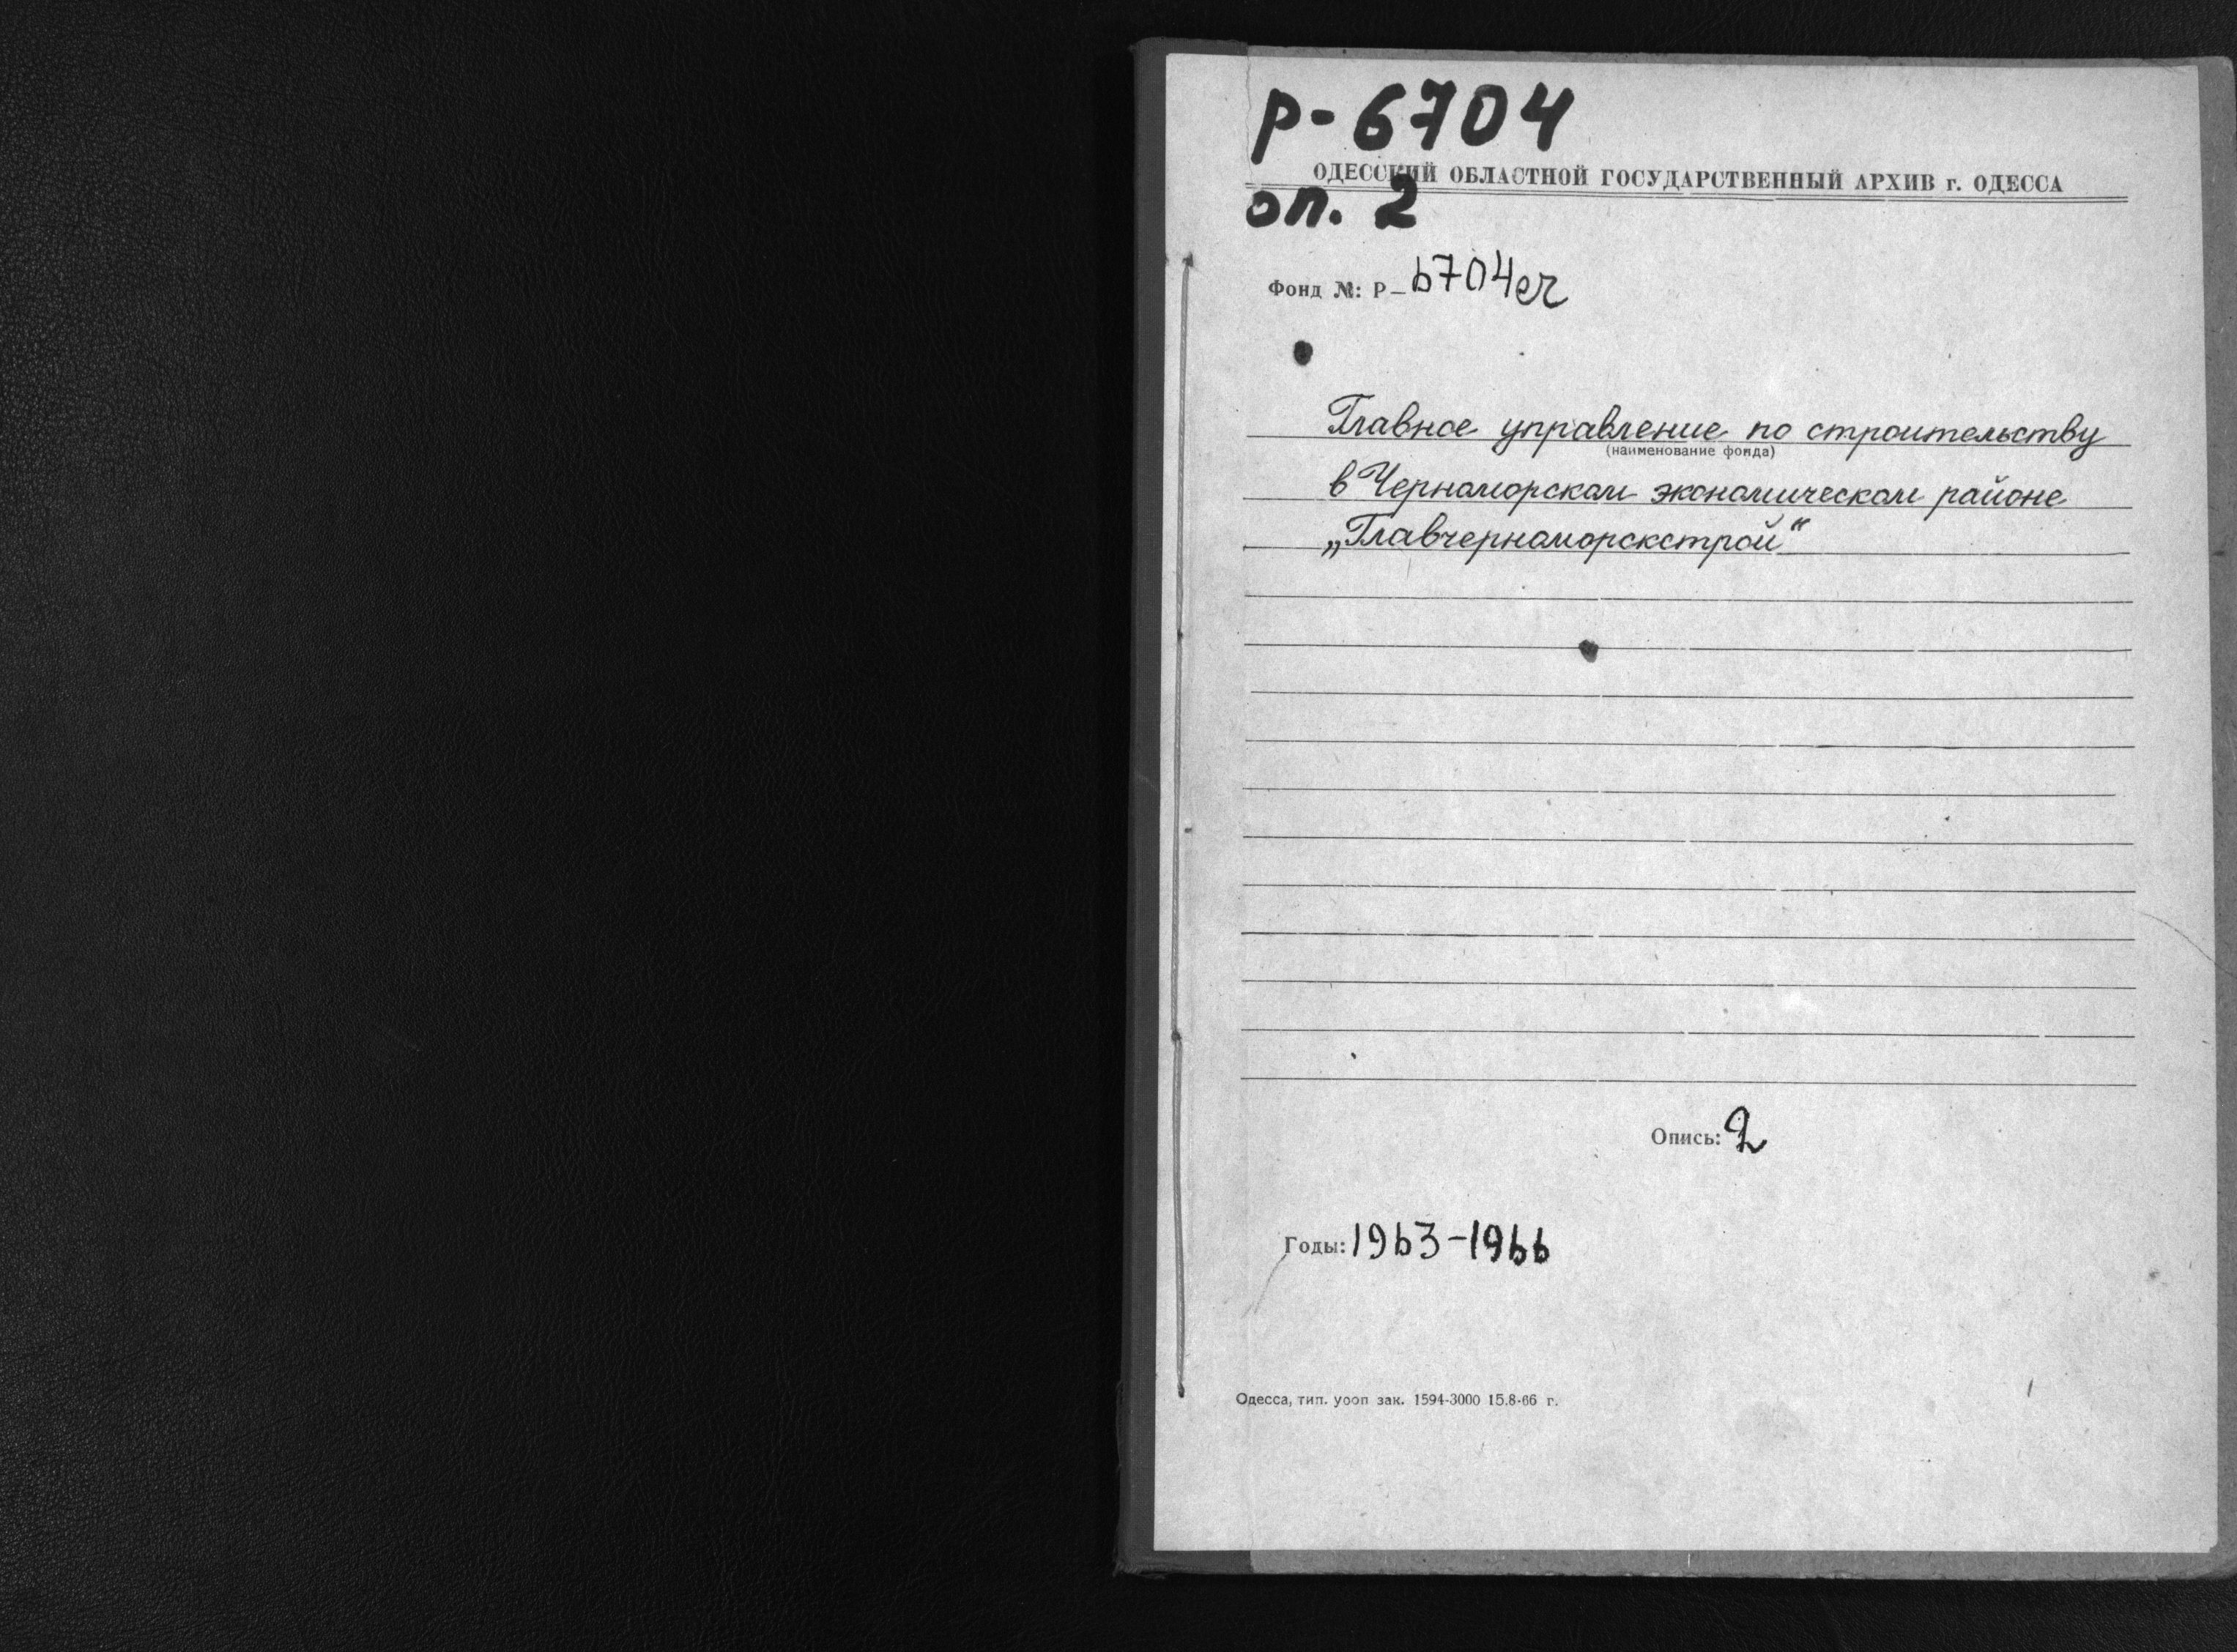 Р-6704
ОДЕССКИЙ ОБЛАСТНОЙ ГОСУДАРСТВЕННЫЙ АРХИВ г. ОДЕССА
оп. 2
Фонд №: Р- 6704
Главное управление по строительству
(наименование фонда)
в Черноморском экономическом районе
„Главчерноморскстрой“
Опись: 2
Годы: 1963-1966
Одесса, тип. уооп зак. 1594-3000 15.8-66 г.